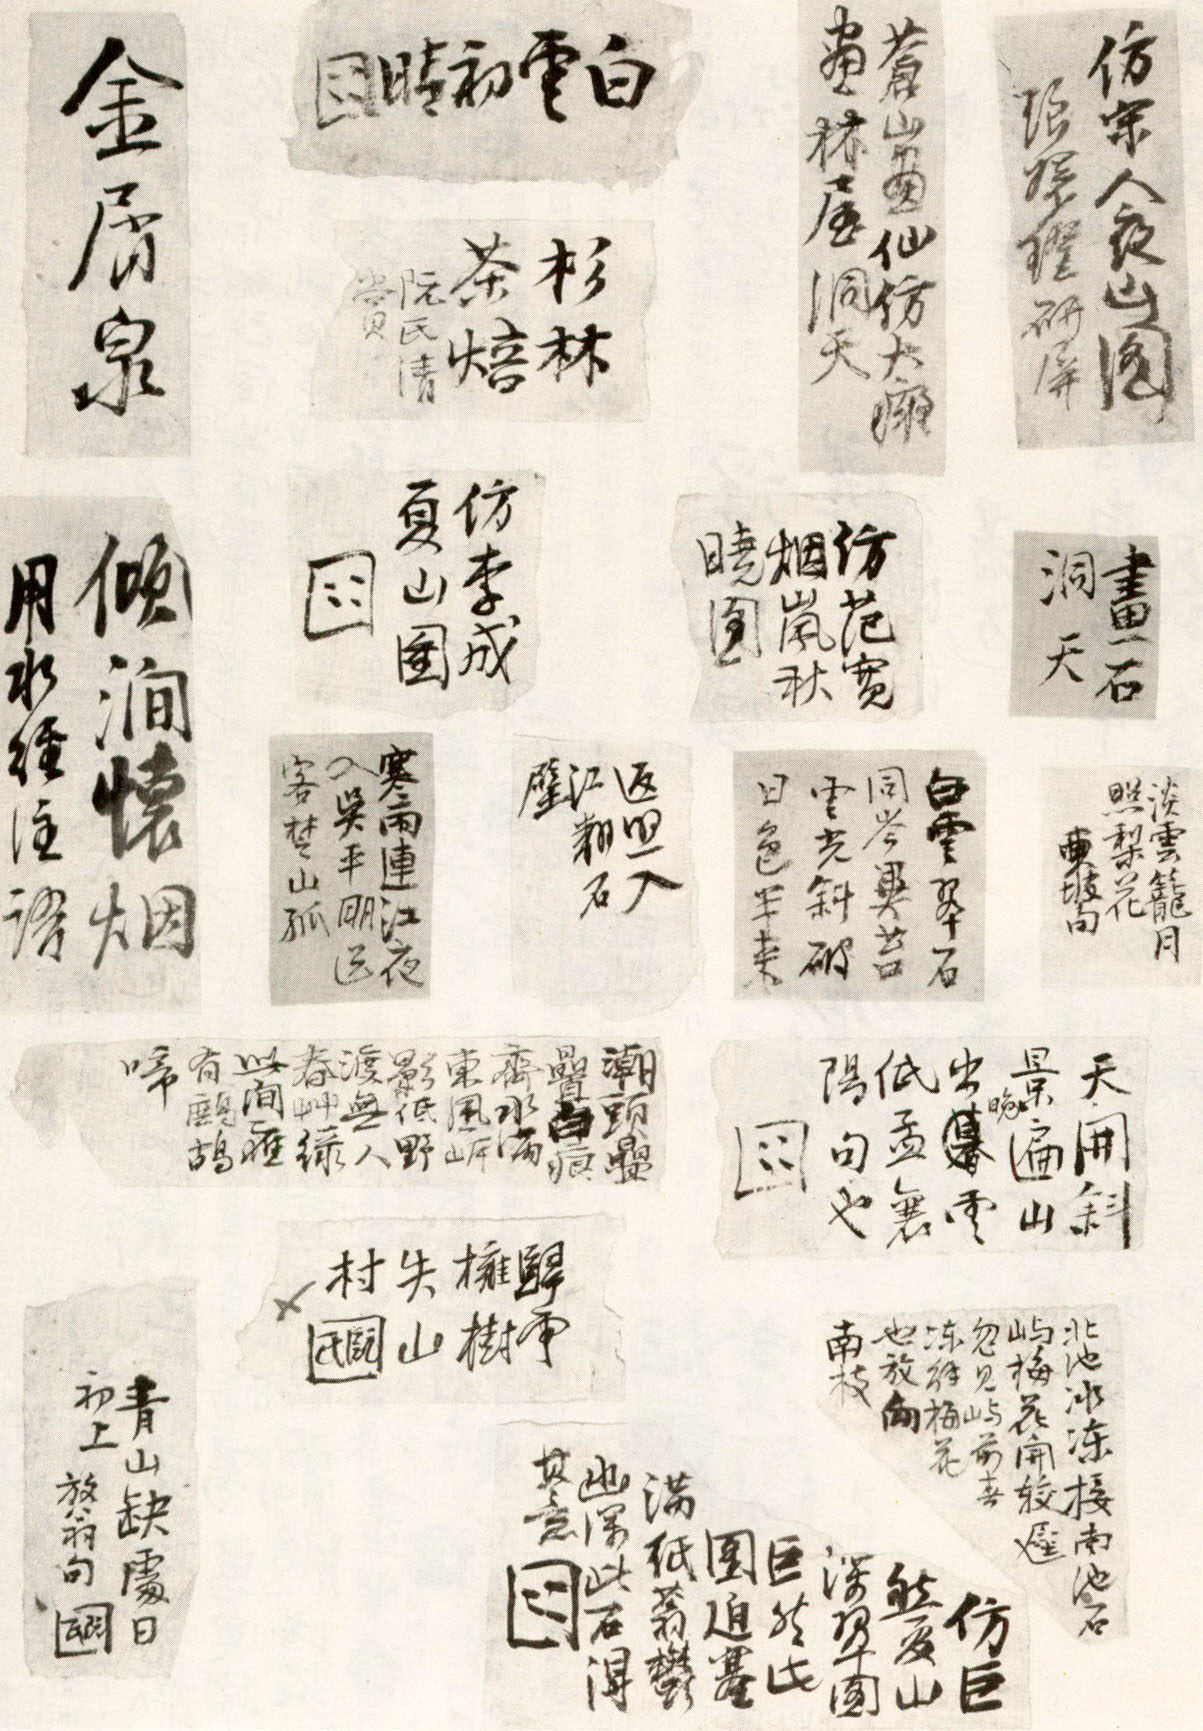 仿宋人夜山圖
蒼山畫仙仿大癡
畫林屋洞天
白雲初晴
金屑泉
杉林
茶焙
阮氏清
賞
畫石
洞天
仿范寬
烟嵐秋
曉圖
仿李成
夏山圖
傾澗懷烟
用水經注語
淡雲籠月
照梨花
東坡句
白雲翠石
同岑異苔
雲光斜破
日色半來
返照入
江翻石
壁
寒雨連江夜
入吳平明送
客楚山孤
天開斜
景遍山
出晚雲
低孟襄
陽句也
潮頭疊
疊白痕
齊水滿
東風岸
影低野
渡無人
春艸綠
此間唯
有鷓鴣
啼
歸雲
擁樹
失山
村
阮氏
北池冰凍接南池石
嶼梅花開較遲
忽見嶼前春
凍解梅花
也放向
南枝
青山缺處日
初上
放翁句
仿巨
然夏山
深翠圖
巨然此
圖迫塞
滿紙蓊鬱
幽深此石得
其意